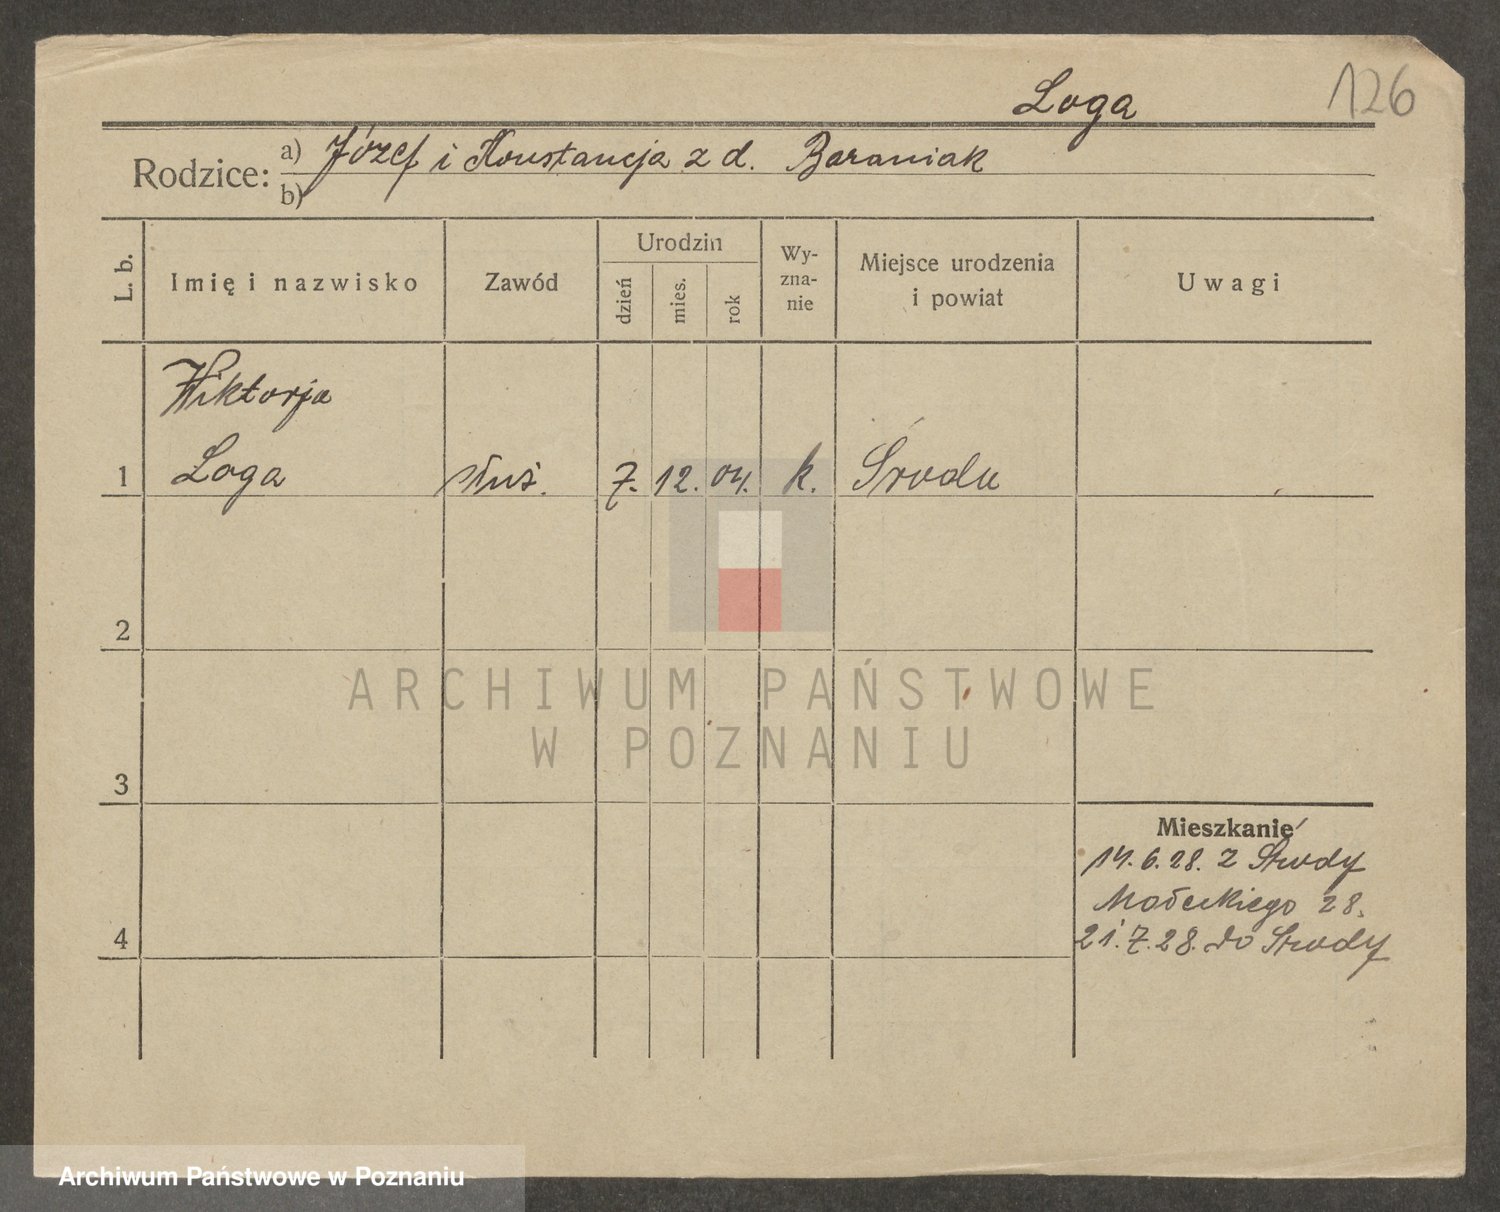 Loga
126
Rodzice: a) Józef i Konstancja z d. Baraniak
b)
L. b.
Imię i nazwisko
Zawód
Urodzin
dzień
mies.
rok
Wy-
zna-
nie
Miejsce urodzenia
i powiat
Uwagi
Wiktorja
1 Loga służ. 7. 12. 04. k. Środa
2
3
4
Mieszkanie
14.6.28. z Środy
Małeckiego 28.
21.7.28. do Środy
ARCHIWUM PAŃSTWOWE
W POZNANIU
Archiwum Państwowe w Poznaniu